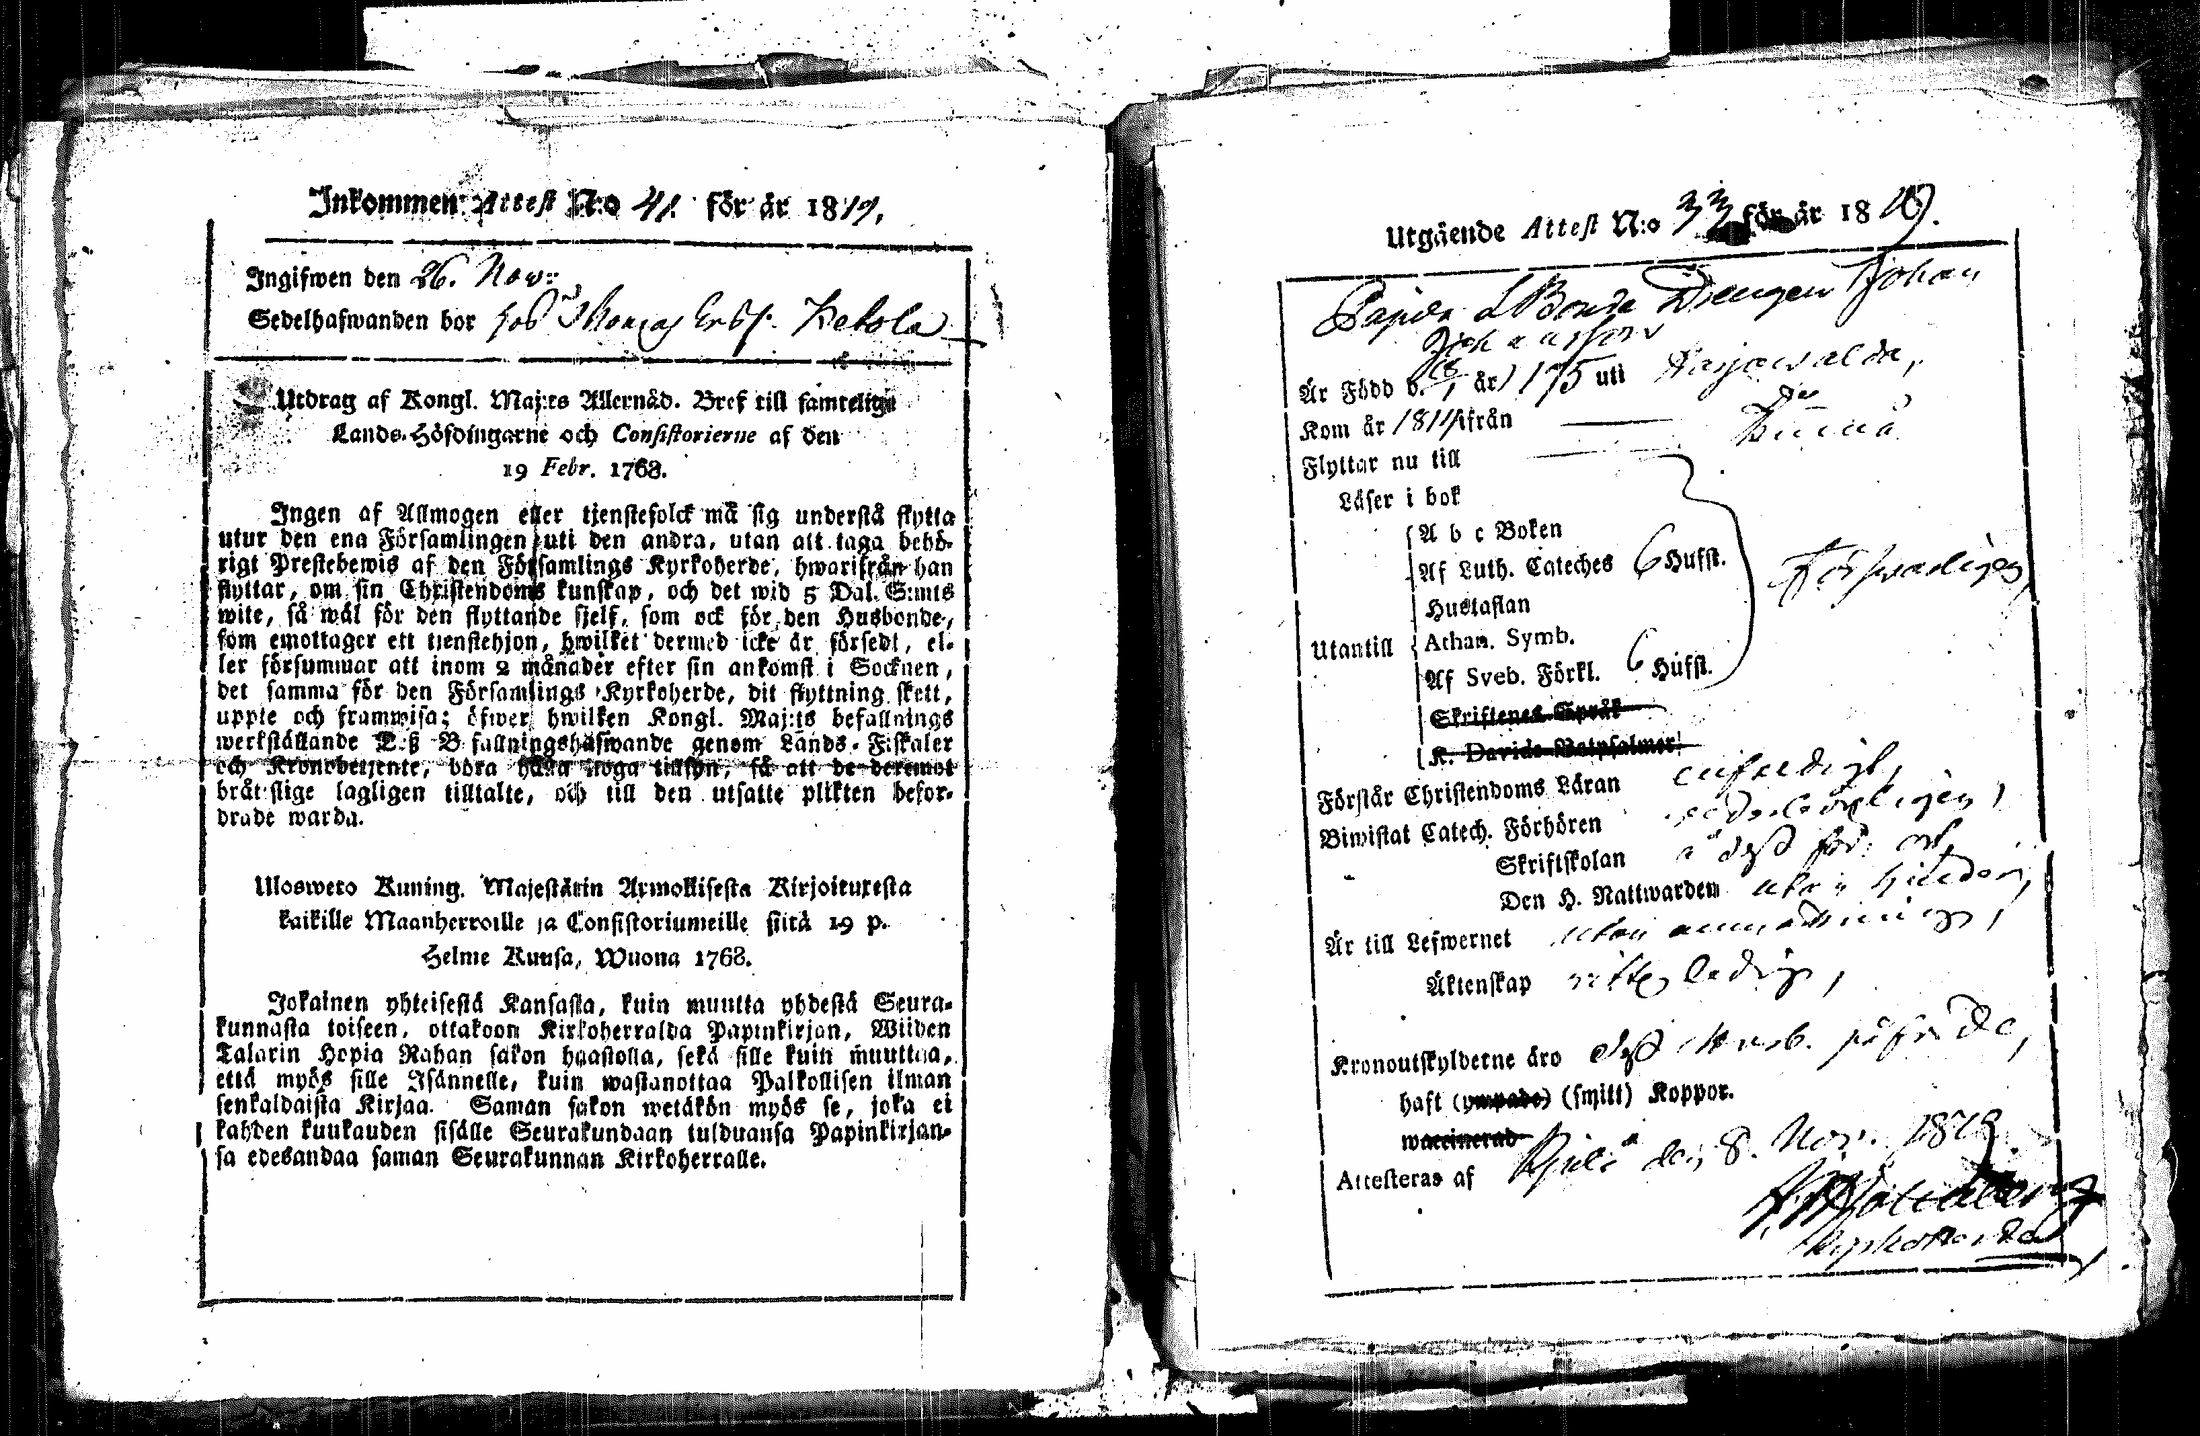 Inkommen Attest N:o 41. för år 1819.
Ingifwen den 26. Nov:
Sedelhafwanden bor hos Thomas Ersf. Ketola
Utdrag af Kongl. Maj:ts Allernåd. Bref till samtelige
Lands-Höfdingarne och Consistorierne af den
19 Febr. 1768.
Ingen af Allmogen eller tjenstefolck må sig understå flytta
utur den ena Församlingen uti den andra, utan att taga behö-
rigt Prestebewis af den Församlings Kyrkoherde, hwarifrån han
flyttar, om sin Christendoms kunskap, och det wid 5 Dal. S:mts
wite, så wäl för den flyttande sjelf, som ock för den Husbonde,
som emottager ett tjenstehjon, hwilket dermed icke är försedt, el-
ler försummar att inom 2 månader efter sin ankomst i Socknen,
det samma för den Församlings Kyrkoherde, dit flyttning skett,
uppte och framwisa; öfwer hwilken Kongl. Maj:ts befallnings
werkställande Deß Befallningshafwande genom Lands-Fiskaler
och Kronobetjente, böra hålla noga tillsyn, så att de deremot
brätstige lagligen tilltalte, och till den utsatte plikten befor-
drade warda.
Ulosweto Kuning. Majestätin Armollisesta Kirjoituxesta
kaikille Maanherroille ja Consistoriumeille siitä 19 p.
Helme Kuusa, Wuona 1768.
Jokainen yhteisestä Kansasta, kuin muutta yhdestä Seura-
kunnasta toiseen, ottakoon Kirkoherralda Papinkirjan, Wiiden
Talarin Hopia Rahan sakon haastolla, sekä sille kuin muuttaa,
että myös sille Isännelle, kuin wastanottaa Palkollisen ilman
senkaldaista Kirjaa. Saman sakon wetäkön myös se, joka ei
kahden kuukauden sisälle Seurakundaan tulduansa Papinkirjan-
sa edesandaa saman Seurakunnan Kirkoherralle.
Utgående Attest N:o 33 för år 1819.
Bonde Drengen Johan
Är Född d. år 175 uti Pajawalda,
Kom år 1811 ifrån
Flyttar nu till
Läser i bok
A b c Boken
Af Luth. Cateches 6 Hufst.
Hustaflan
Utantill Athan. Symb.
Af Sveb. Förkl. 6 Hufst.
Försvarligen
Skriftenes Språk
K. Davids Botpsalmer
Förstår Christendoms Läran enfaldigt,
Biwistat Catech. Förhören vederbörligen,
Skriftskolan
Den H. Nattwarden utan hinder,
Är till Lefwernet utan anmärkning,
Äktenskap ledig,
Kronoutskylderne äro
haft (ympade) (smitt) Koppor.
waccinerad
Attesteras af den 8. Nov. 1819
Kyrkoherde